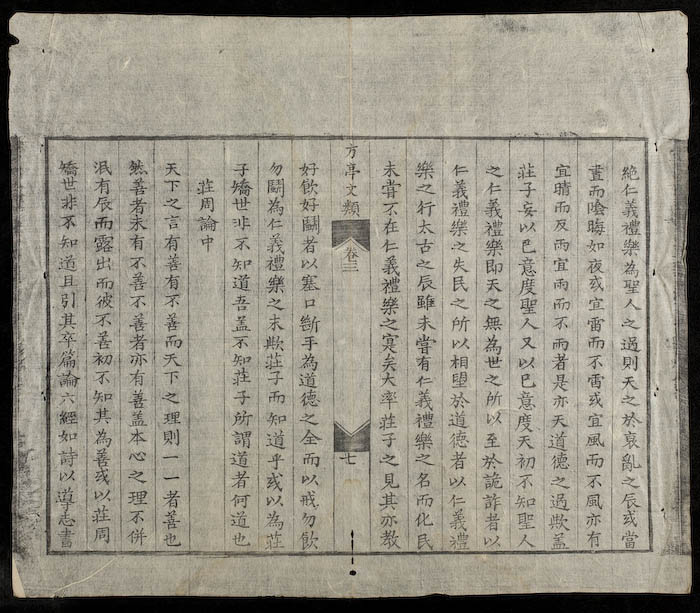 絶仁義禮樂為聖人之過則天之於衰亂之辰或當
晝而陰晦如夜或宜雷而不雷或宜風而不風亦有
宜晴而反雨宜雨而不雨者是亦天道德之過歟盖
莊子妄以已意度聖人又以已意度天初不知聖人
之仁義禮樂即天之無為世之所以至於詭詐者以
仁義禮樂之失民之所以相望於道德者以仁義禮
樂之行太古之辰雖未嘗有仁義禮樂之名而化民
未嘗不在仁義禮樂之寔矣大率莊子之見其亦教
方亭文類
卷三
七
好飲好鬭者以塞口斷手為道德之全而以戒勿飲
勿鬭為仁義禮樂之末歟莊子而知道乎或以為莊
子矯世非不知道吾盖不知莊子所謂道者何道也
莊周論中
天下之言有善有不善而天下之理則一一者善也
然善者未有不善不善者亦有善盖本心之理不併
泯有辰而露出而彼不善初不知其為善或以莊周
矯世非不知道且引其卒篇論六經如詩以導志書